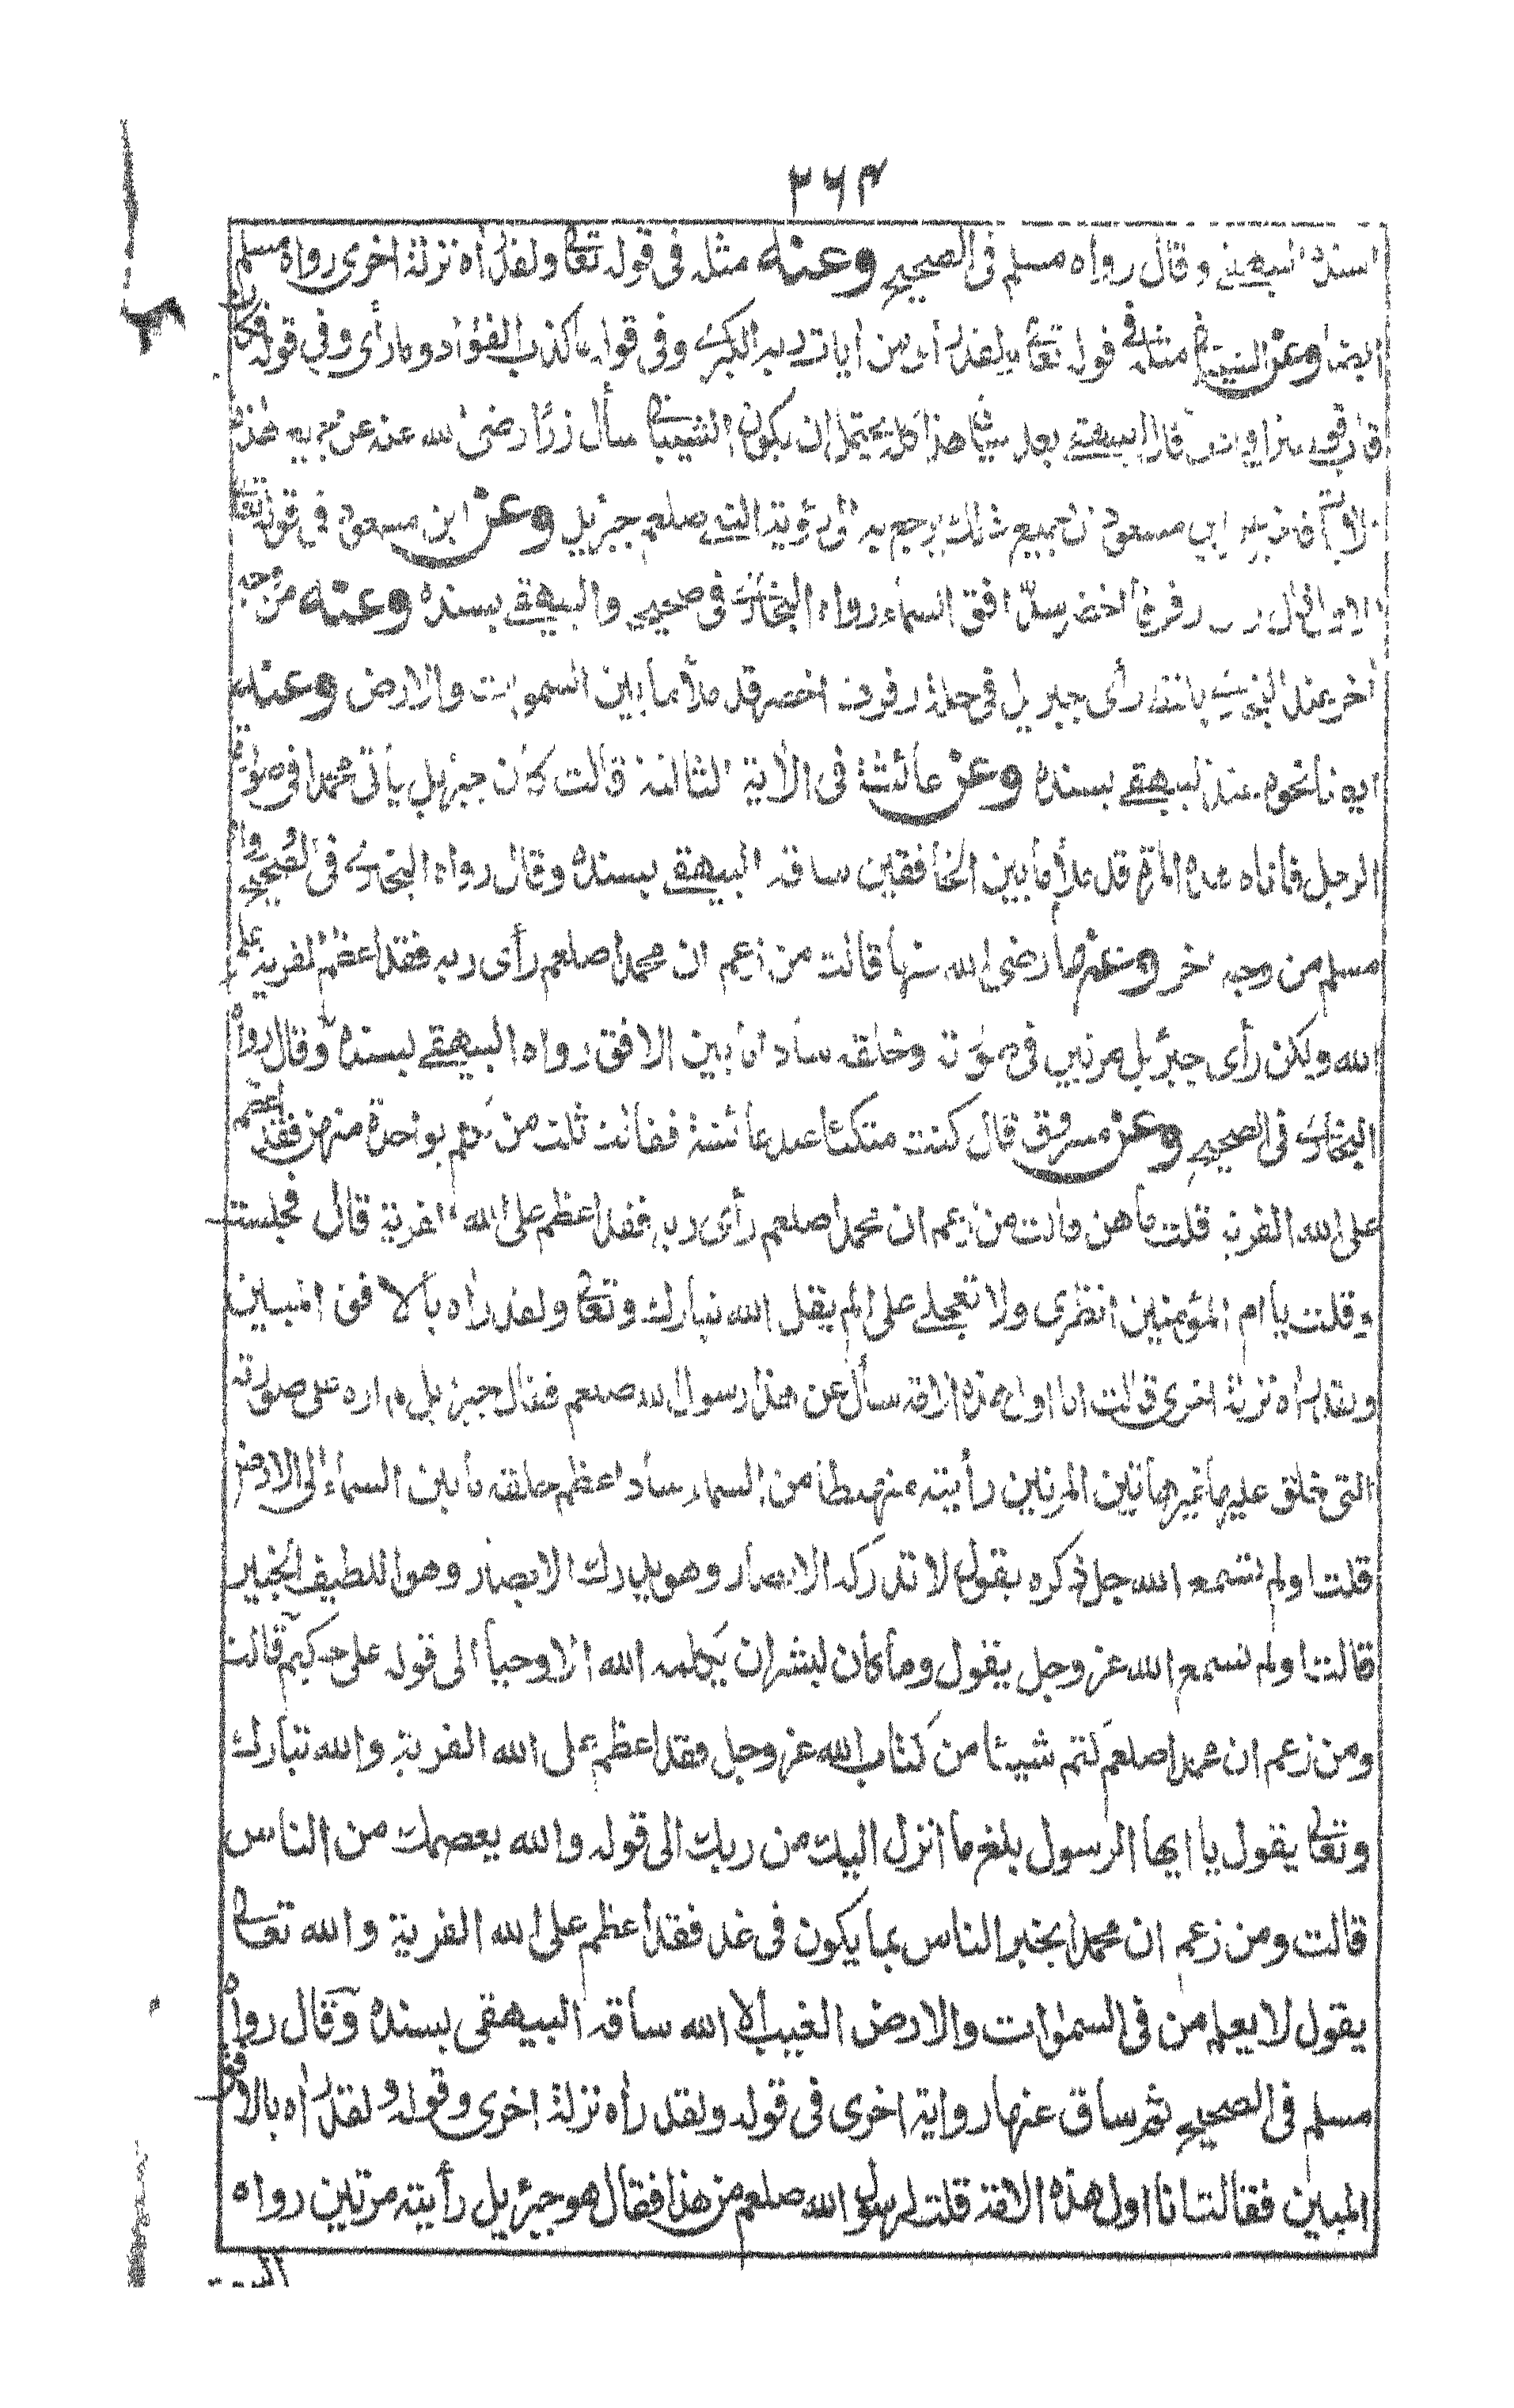 ٢٦٣
اسنده البيهقي وقال رواه مسلم فى الصحيح وعنه مثله فى قوله تعالى ولقد رأه نزلة اخرى رواه مسلم
ايضا وعن الشيباني مثله فى قوله تعالى لقد رأى من أيات ربه الكبرى وفى قوله ما كذب الفؤاد ما رأى وفي قوله فكان
قاب قوسين او ادنى قال البيهقي بعد سياق هذا كله يحتمل ان يكون الشيباني سأل زرا رضى الله عنه عن جميع هذه
الآيات ابن مسعود ان جميع ذلك يرجع به الى رؤية النبي صلعم جبرئيل وعن ابن مسعود في قوله تعالى
رفرفا اخضر سد افق السماء رواه البخاري فى صحيحه والبيهقي بسنده وعنه من وجه
أخر عند البيهقي بانه رأى جبريل فى حلة رفرف اخضر قد ملأ ما بين السموات والارض وعنه
ايضا نحوه عند البيهقي بسنده وعن عائشة فى الأية الثالثة قالت كان جبرئيل يأتى محمدا فى صورة
الرجل فأتاه هذه المرة قد ملأ ما بين الخافقين ساقه البيهقي بسنده وقال رواه البخاري فى الصحيح رواه
مسلم من وجه أخر وعنها رضى الله عنها قالت من زعم ان محمدا صلعم رأى ربه فقد اعظم الفرية على
الله ولكن رأى جبرئيل مرتين فى صورته وخلقه سادا ما بين الافق رواه البيهقي بسنده وقال رواه
البخاري فى الصحيح وعن مسروق قال كنت متكئا عند عائشة فقالت ثلث من زعم بواحدة منهن فقد اعظم
على الله الفرية قلت ما هن قالت من زعم ان محمدا صلعم رأى ربه فقد اعظم على الله الفرية قال فجلست
وقلت يا ام المؤمنين انظرى ولا تعجلي على الم يقل الله تبارك وتعالى ولقد رأه بألافق المبين
ولقد رأه نزلة اخرى قالت انا اول هذه الامة سأل عن هذا رسول الله صلعم فقال جبرئيل لم اره على صورته
التى خلق عليها غير هاتين المرتين رأيته منهبطا من السماء سادا عظم خلقه ما بين السماء الى الارض
قلت او لم تسمع الله جل ذكره يقول لا تدركه الابصار وهو يدرك الابصار وهو اللطيف الخبير
قالت او لم تسمع الله عز وجل يقول وما كان لبشر ان يكلمه الله الا وحيا الى قوله على حكيم قالت
ومن زعم ان محمدا صلعم كتم شيئا من كتاب الله عز وجل فقد اعظم على الله الفرية والله تبارك
وتعالى يقول يا ايها الرسول بلغ ما انزل اليك من ربك الى قوله والله يعصمك من الناس
قالت ومن زعم ان محمدا يخبر الناس بما يكون فى غد فقد اعظم على الله الفرية والله تعالى
يقول لا يعلم من فى السموات والارض الغيب ألا الله ساقه البيهقى بسنده وقال رواه
مسلم فى الصحيح ثم ساق عنها رواية اخرى فى قوله ولقد رأه نزلة اخرى وقوله ولقد رأه بالافق
المبين فقالت انا اول هذه الامة قلت لرسول الله صلعم من هذا فقال هو جبرئيل رأيته مرتين رواه